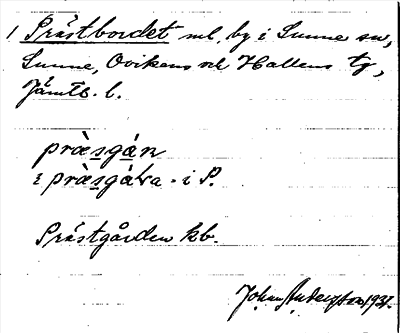 1 Prästbordet ml. by i Sunne sn,
Sunne, Ovikens o. Hallens tg,
Jämtl. l.
præsgån
i præsgåɽa - i P.
Prästgården kb.
Johan Anderson 1931.